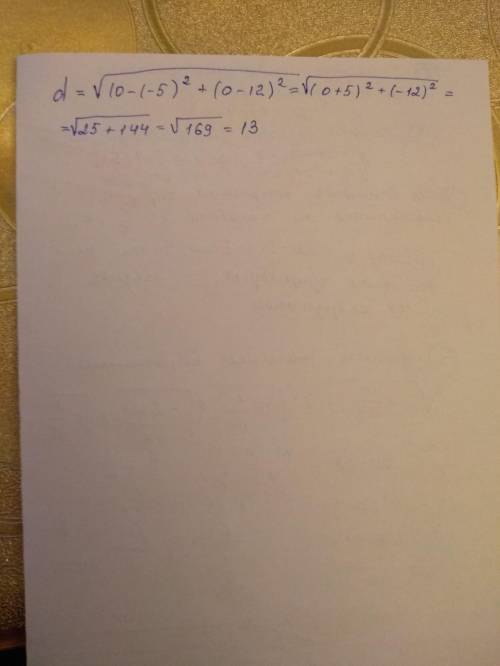 d = √(0-(-5)² + (0-12)² = √(0+5)² + (-12)² =
= √25 + 144 = √169 = 13